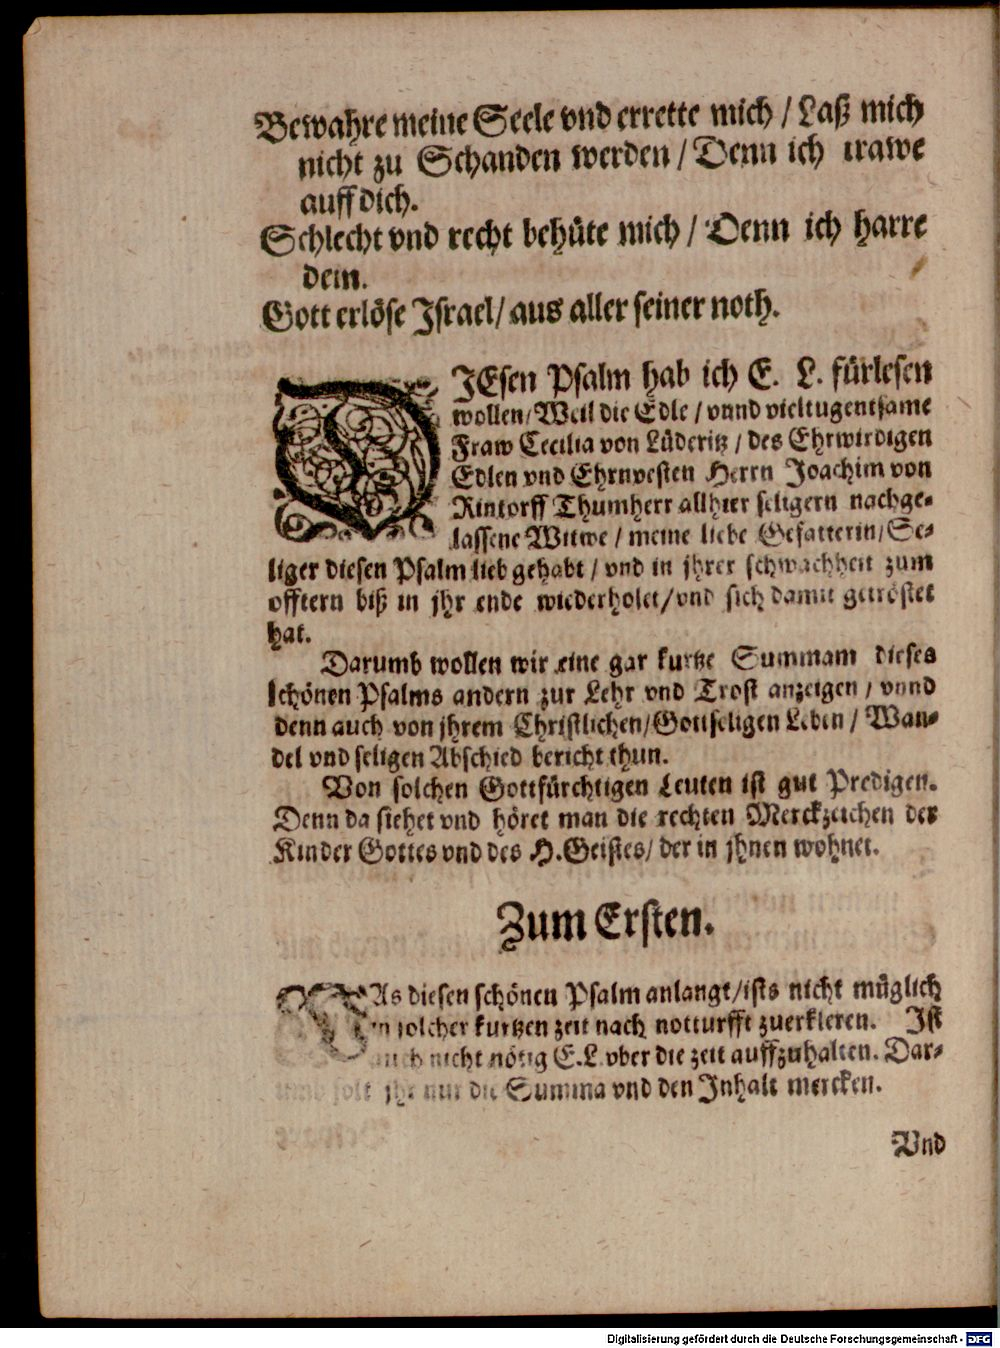 Bewahre meine Seele vnd errette mich / Laß mich
nicht zu Schanden werden / Denn ich trawe
auff dich.
Schlecht vnd recht behüte mich / Denn ich harre
dein.
Gott erlöse Israel / aus aller seiner noth.
DIEsen Psalm hab ich E. L. fürlesen
wollen / Weil die Edle / vnnd vieltugentsame
Fraw Cecilia von Lüderitz / des Ehrwirdigen
Edlen vnd Ehrnvesten Herrn Joachim von
Rintorff Thumherr allhier seligern nachge-
lassene Witwe / meine liebe Gefatterin / Se-
liger diesen Psalm lieb gehabt / vnd in jhrer schwachheit zum
offtern biß in jhr ende wiederholet / vnd sich damit getröstet
hat.
Darumb wollen wir eine gar kurtze Summam dieses
schönen Psalms andern zur Lehr vnd Trost anzeigen / vnnd
denn auch von jhrem Christlichen / Gottseligen Leben / Wan-
del vnd seligen Abschied bericht thun.
Von solchen Gottfürchtigen Leuten ist gut Predigen.
Denn da siehet vnd höret man die rechten Merckzeichen der
Kinder Gottes vnd des H. Geistes / der in jhnen wohnet.
Zum Ersten.
WAs diesen schönen Psalm anlangt / ists nicht müglich
in solcher kurtzen zeit nach notturfft zuerkleren. Ist
auch nicht nötig E. L. vber die zeit auffzuhalten. Dar-
jhr nur die Summa vnd den Inhalt mercken.
Vnd
Digitalisierung gefördert durch die Deutsche Forschungsgemeinschaft - DFG